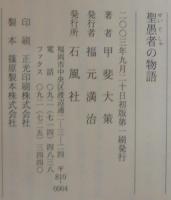 聖愚者の物語
せいぐしゃ
二〇〇三年九月二十日初版第一刷発行
著者 甲斐大策
発行者 福元満治
発行所 石風社
福岡市中央区渡辺通二―三―二四 〒810-0004
電話 〇九二(七一四)四八三八
ファクス 〇九二(七二五)三四四〇
印刷 正光印刷株式会社
製本 篠原製本株式会社